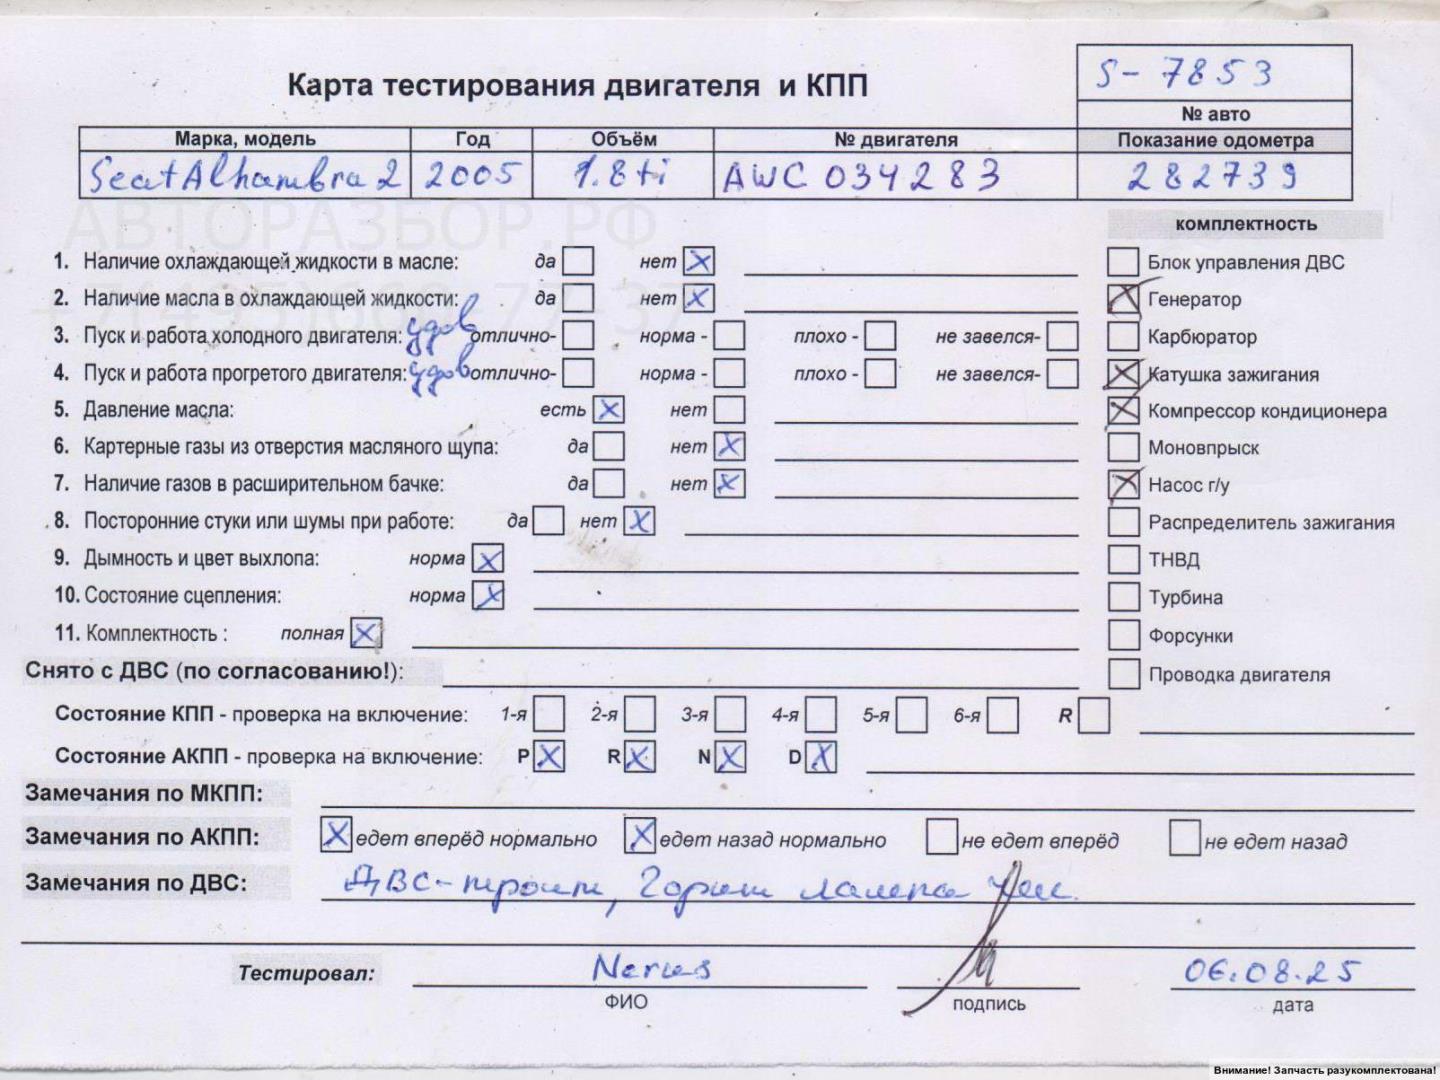 S-7853
Карта тестирования двигателя и КПП
№ авто
Марка, модель Год Объём № двигателя Показание одометра
SeatAlhambra 2 2005 1.8ti AWC 034283 282739
АВТОРАЗБОР.РФ
комплектность
1. Наличие охлаждающей жидкости в масле: да нет X Блок управления ДВС
+7(495)660-77-37
2. Наличие масла в охлаждающей жидкости: да нет X X Генератор
3. Пуск и работа холодного двигателя: удов отлично- норма - плохо - не завелся- Карбюратор
4. Пуск и работа прогретого двигателя: удов отлично- норма - плохо - не завелся- X Катушка зажигания
5. Давление масла: есть X нет X Компрессор кондиционера
6. Картерные газы из отверстия масляного щупа: да нет X Моновпрыск
7. Наличие газов в расширительном бачке: да нет X X Насос г/у
8. Посторонние стуки или шумы при работе: да нет X Распределитель зажигания
9. Дымность и цвет выхлопа: норма X ТНВД
10. Состояние сцепления: норма X Турбина
11. Комплектность : полная X Форсунки
Снято с ДВС (по согласованию!): Проводка двигателя
Состояние КПП - проверка на включение: 1-я 2-я 3-я 4-я 5-я 6-я R
Состояние АКПП - проверка на включение: P X R X N X D X
Замечания по МКПП:
Замечания по АКПП: X едет вперёд нормально X едет назад нормально не едет вперёд не едет назад
Замечания по ДВС: ДВС-троит, Горит лампа
Тестировал: 06.08.25
ФИО подпись дата
Внимание! Запчасть разукомплектована!